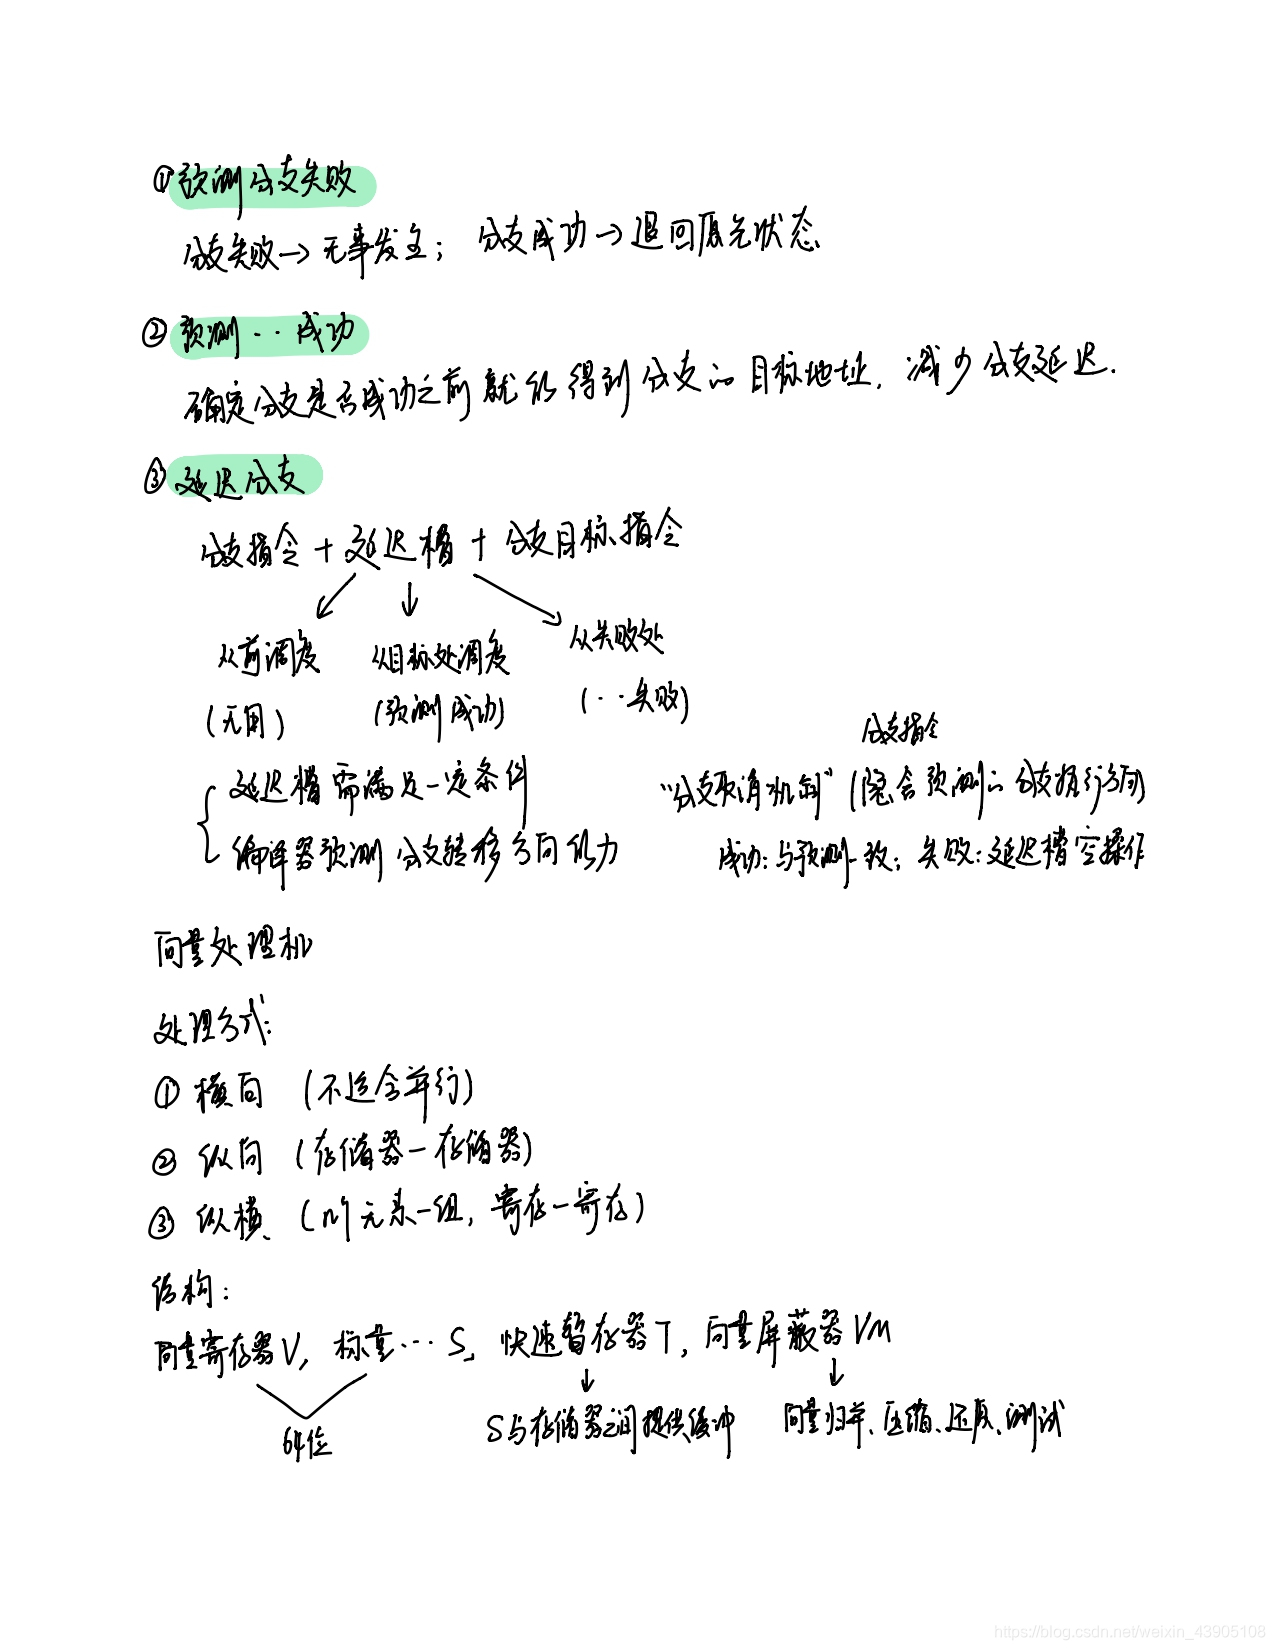 ①预测分支失败
分支失败→无事发生；分支成功→退回原先状态
②预测··成功
确定分支是否成功之前就能得到分支的目标地址，减少分支延迟.
③延迟分支
分支指令+延迟槽+分支目标指令
从前调度 从目标处调度 从失败处
(无用) (预测成功) (··失败)
延迟槽需满足一定条件
编译器预测分支转移方向能力
分支指令
“分支取消机制”(隐含预测的分支执行方向)
成功:与预测一致；失败:延迟槽空操作
向量处理机
处理方式:
① 横向 (不适合并行)
② 纵向 (存储器-存储器)
③ 纵横 (n个元素一组，寄存-寄存)
结构:
向量寄存器V，标量···S、快速暂存器T，向量屏蔽器VM
64位 S与存储器之间提供缓冲 向量归并、压缩、还原、测试
https://blog.csdn.net/weixin_43905108